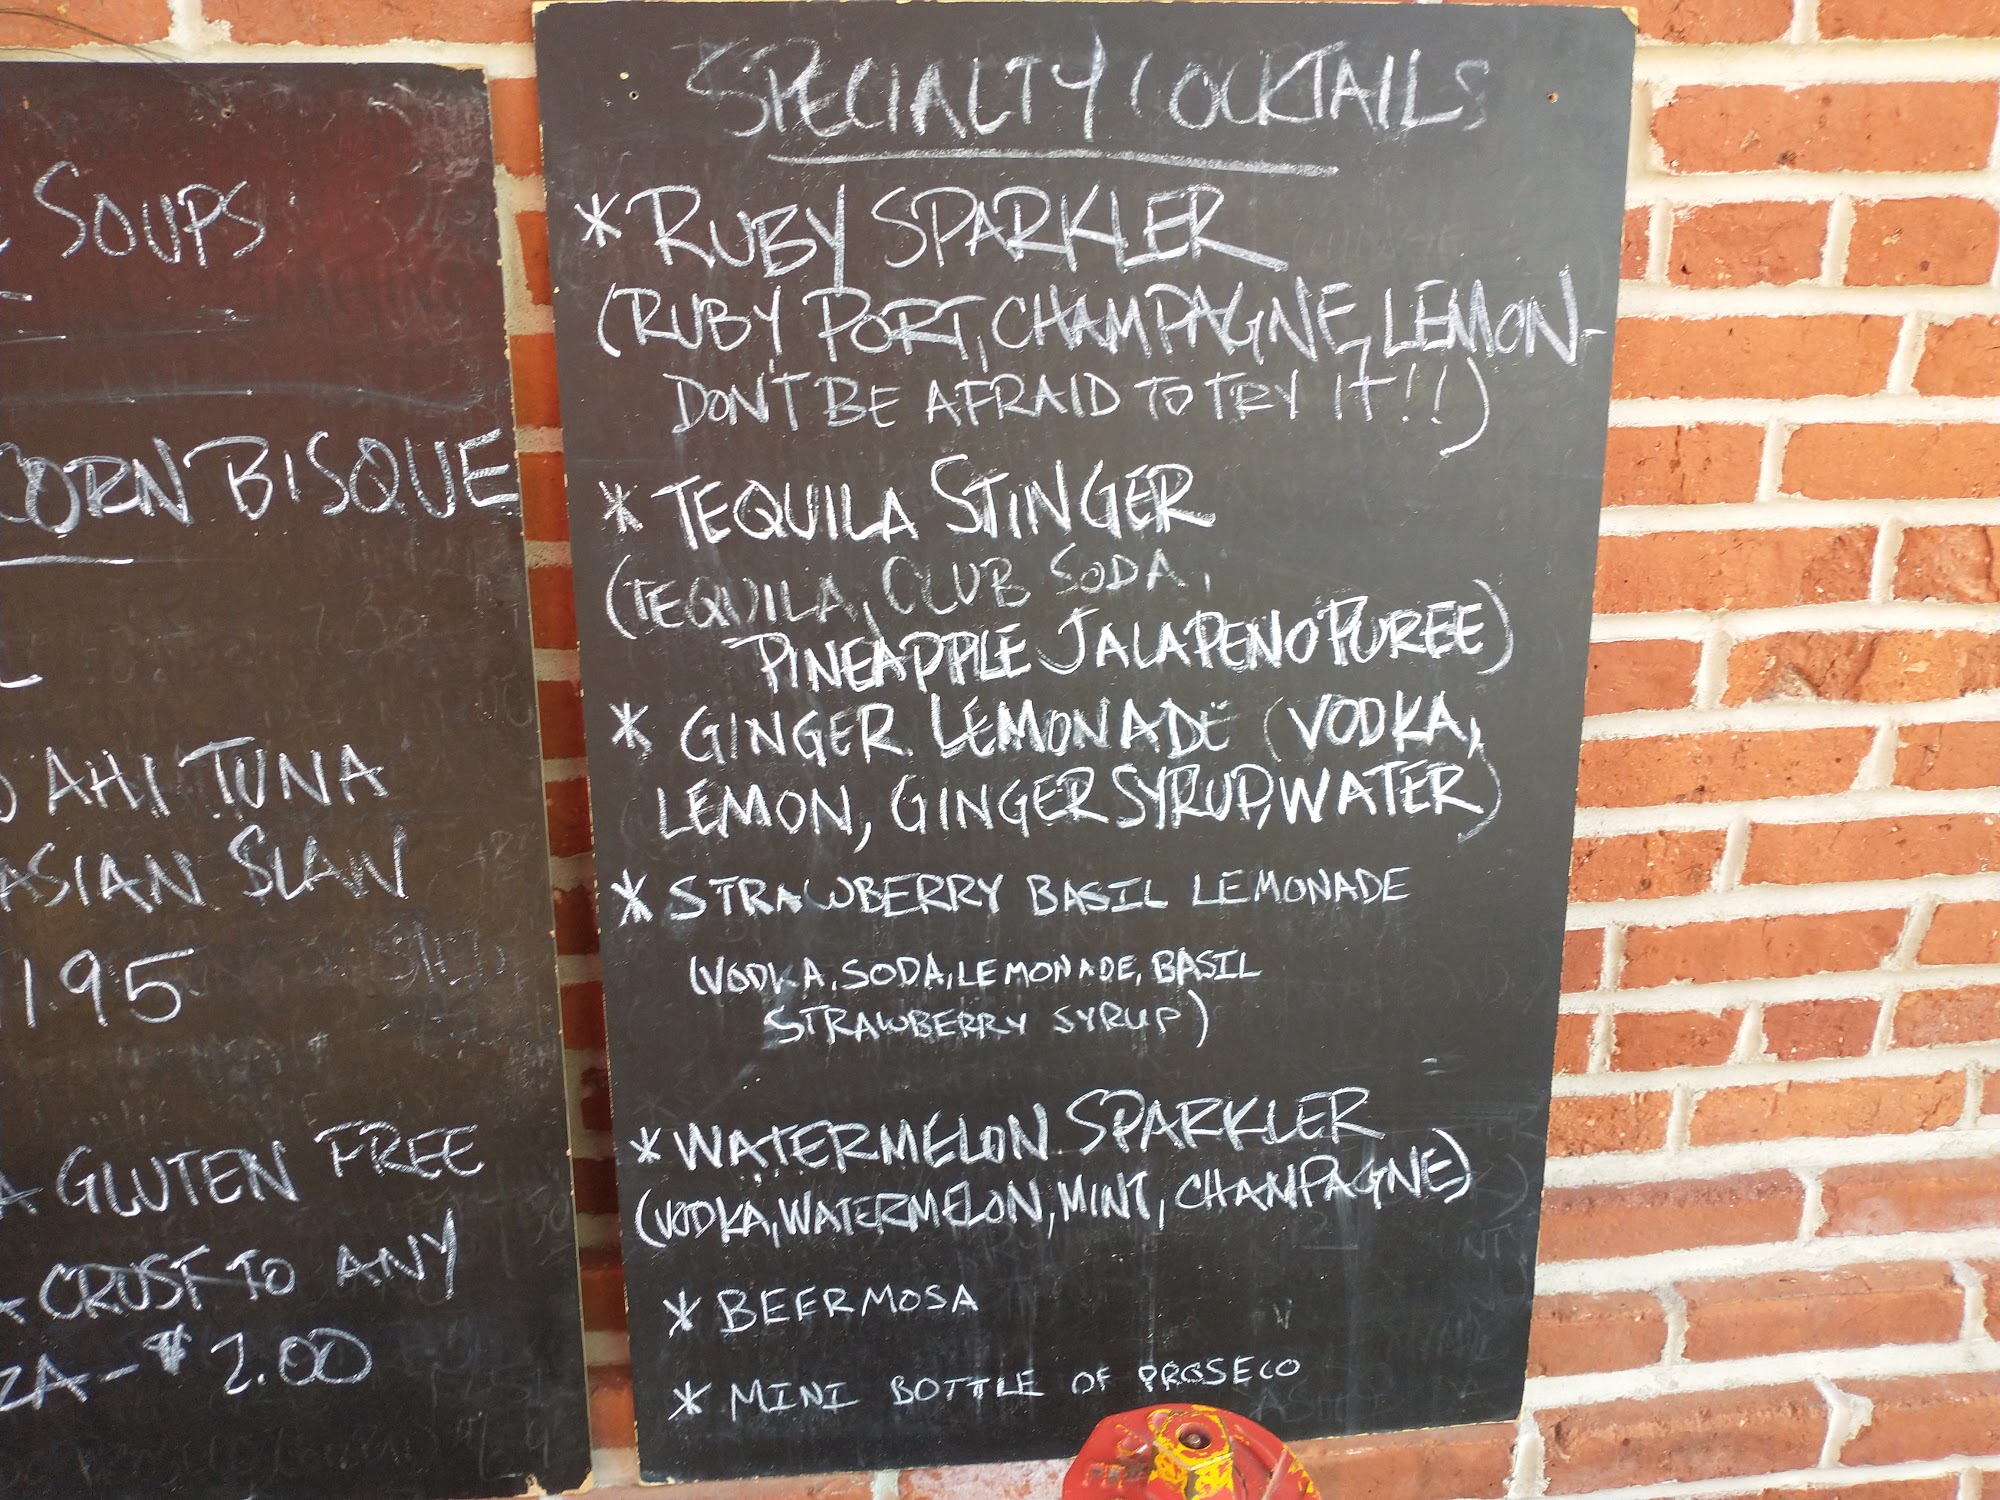 SOUPS
CORN BISQUE
AHI TUNA
ASIAN SLAW
195
A GLUTEN FREE
CRUST TO ANY
ZA - $2.00
SPECIALTY COCKTAILS
* RUBY SPARKLER
(RUBY PORT, CHAMPAGNE, LEMON-
DON'T BE AFRAID TO TRY IT!!)
* TEQUILA STINGER
(TEQUILA, CLUB SODA,
PINEAPPLE JALAPENO PUREE)
* GINGER LEMONADE (VODKA,
LEMON, GINGER SYRUP, WATER)
* STRAWBERRY BASIL LEMONADE
(VODKA, SODA, LEMONADE, BASIL
STRAWBERRY SYRUP)
* WATERMELON SPARKLER
(VODKA, WATERMELON, MINT, CHAMPAGNE)
* BEERMOSA
* MINI BOTTLE OF PROSECO